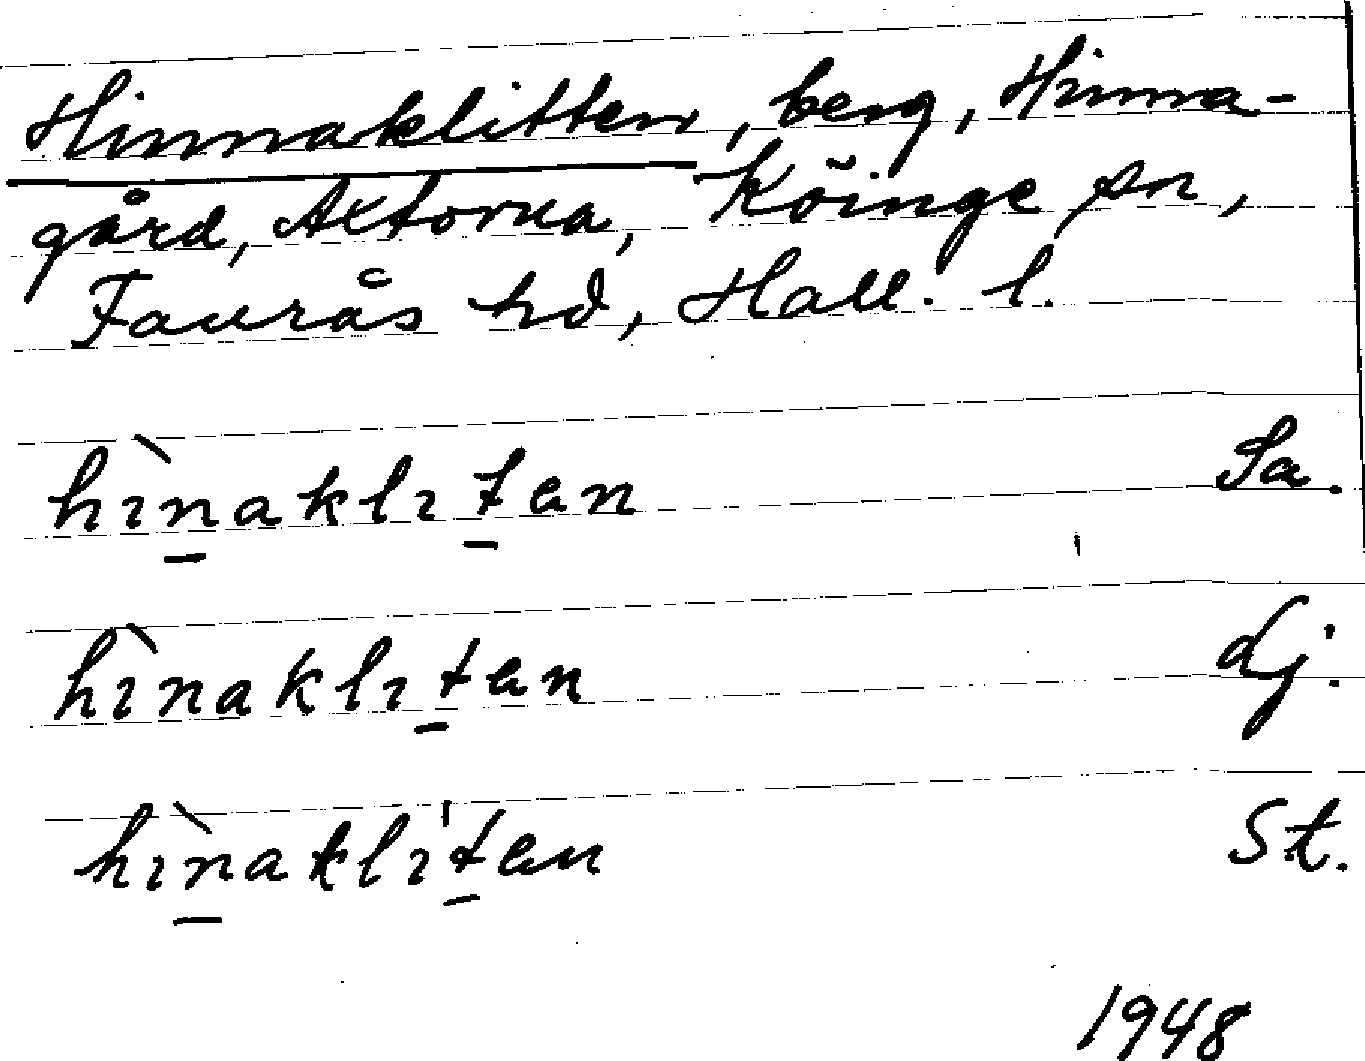 Hinnaklitten, berg, Hinna-
gård, Axtorna, Köinge sn,
Faurås hd, Hall. l.
hɩ̀n̲aklɩt̲an Sa.
hɩ̀naklɩt̲an Lj.
hɩ̀n̲aklɩ't̲an St.
1948